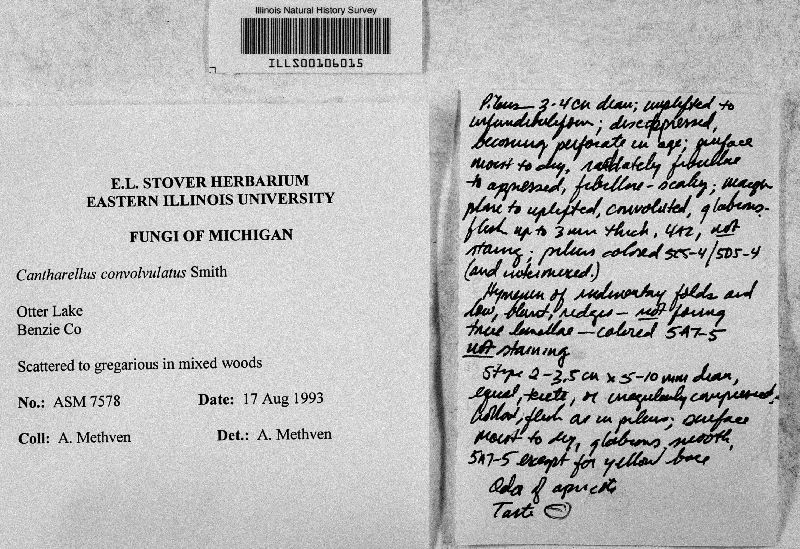 Illinois Natural History Survey
ILLS00106015
E.L. STOVER HERBARIUM
EASTERN ILLINOIS UNIVERSITY
FUNGI OF MICHIGAN
Cantharellus convolvulatus Smith
Otter Lake
Benzie Co
Scattered to gregarious in mixed woods
No.: ASM 7578 Date: 17 Aug 1993
Coll: A. Methven Det.: A. Methven
Pileus 3-4 cm diam; uplifted to
infundibuliform; disc appressed,
becoming perforate in age; surface
moist to dry, radiately fibrillose
to appressed, fibrillose-scaly; margin
plane to uplifted, convoluted, glabrous.
flesh up to 3 mm thick, 4A2, not
staining; pileus colored 5C5-4/5D5-4
(and intermixed.)
Hymenium of rudimentary folds and
low, blunt, ridges - not forming
true lamellae - colored 5A7-5
not staining
Stipe 2-3.5 cm x 5-10 mm diam,
equal, terete, or irregularly compressed,
hollow, flesh as in pileus; surface
moist to dry, glabrous, smooth,
5A7-5 except for yellow base
Odor of apricots
Taste